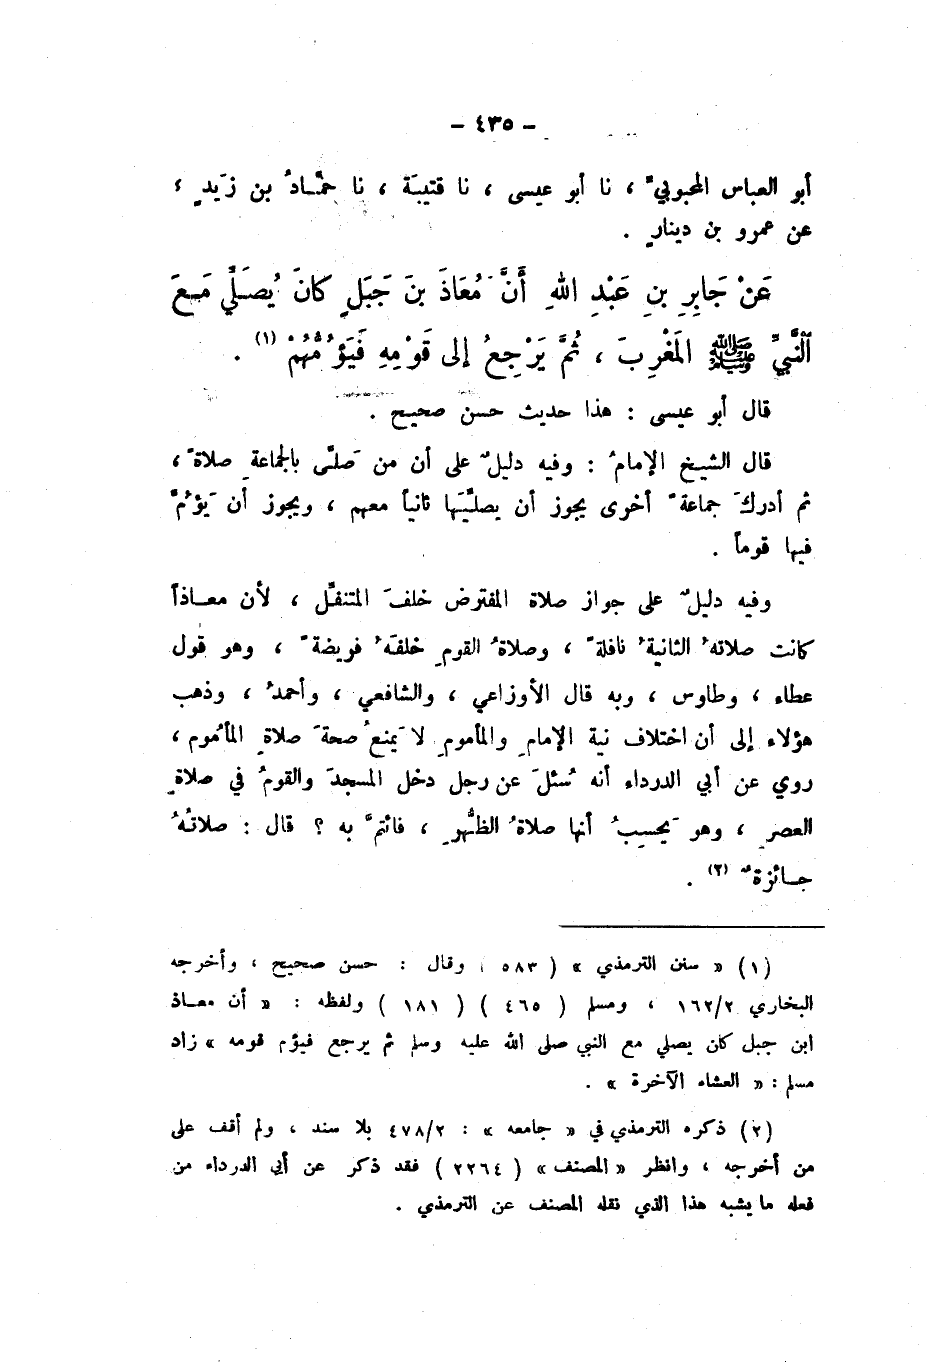 - ٤٣٥ -
أبو العباس المحبوبيّ ، نا أبو عيسى ، نا قتيبَة ، نا حمَّـادُ بن زَيدٍ ،
عن عمرو بن دينارٍ .
عَنْ جَابِرِ بنِ عَبْدِ اللهِ أَنَّ مُعَاذَ بنَ جَبَلٍ كانَ يُصَلِّي مَـعَ
النَّبيِّ ﷺ المَغْرِبَ ، ثُمَّ يَرْجِعُ إلى قَوْمِهِ فَيَؤُمُّهُمْ (١) .
قال أبو عيسى : هذا حديث حسن صحيح .
قال الشيخ الإمامُ : وفيه دليلٌ على أن من صَلَّى بالجماعةِ صلاةً ،
ثم أدركَ جماعةً أخرى يجوز أن يصلِّيَها ثانياً معهم ، ويجوز أن يَؤُمَّ
فيها قوماً .
وفيه دليلٌ على جواز صلاة المفترض خلفَ المتنفِّل ، لأن معـاذاً
كانت صلاتهُ الثانيةُ نافلةً ، وصلاةُ القومِ خلفَهُ فريضةً ، وهو قول
عطاء ، وطاوس ، وبه قال الأوزاعي ، والشافعي ، وأحمدُ ، وذهب
هؤلاء إلى أن اختلاف نية الإمامِ والمأمومِ لا يَمنعُ صحةَ صلاةِ المأموم ،
روي عن أبي الدرداء أنه سُئلَ عن رجل دخل المسجدَ والقومُ في صلاةِ
العصرِ ، وهو يَحسِبُ أنها صلاةُ الظهرِ ، فائتمَّ به ؟ قال : صلاتُهُ
جـائزةٌ (٢) .
(١) « سنن الترمذي » ( ٥٨٣ ) وقال : حسن صحيح ، وأخرجه
البخاري ١٦٢/٢ ، ومسلم ( ٤٦٥ ) ( ١٨١ ) ولفظه : « أن معـاذ
ابن جبل كان يصلي مع النبي صلى الله عليه وسلم ثم يرجع فيؤم قومه » زاد
مسلم : « العشاء الآخرة » .
(٢) ذكره الترمذي في « جامعه » : ٤٧٨/٢ بلا سند ، ولم أقف على
من أخرجه ، وانظر « المصنف » ( ٢٢٦٤ ) فقد ذكر عن أبي الدرداء من
فعله ما يشبه هذا الذي نقله المصنف عن الترمذي .